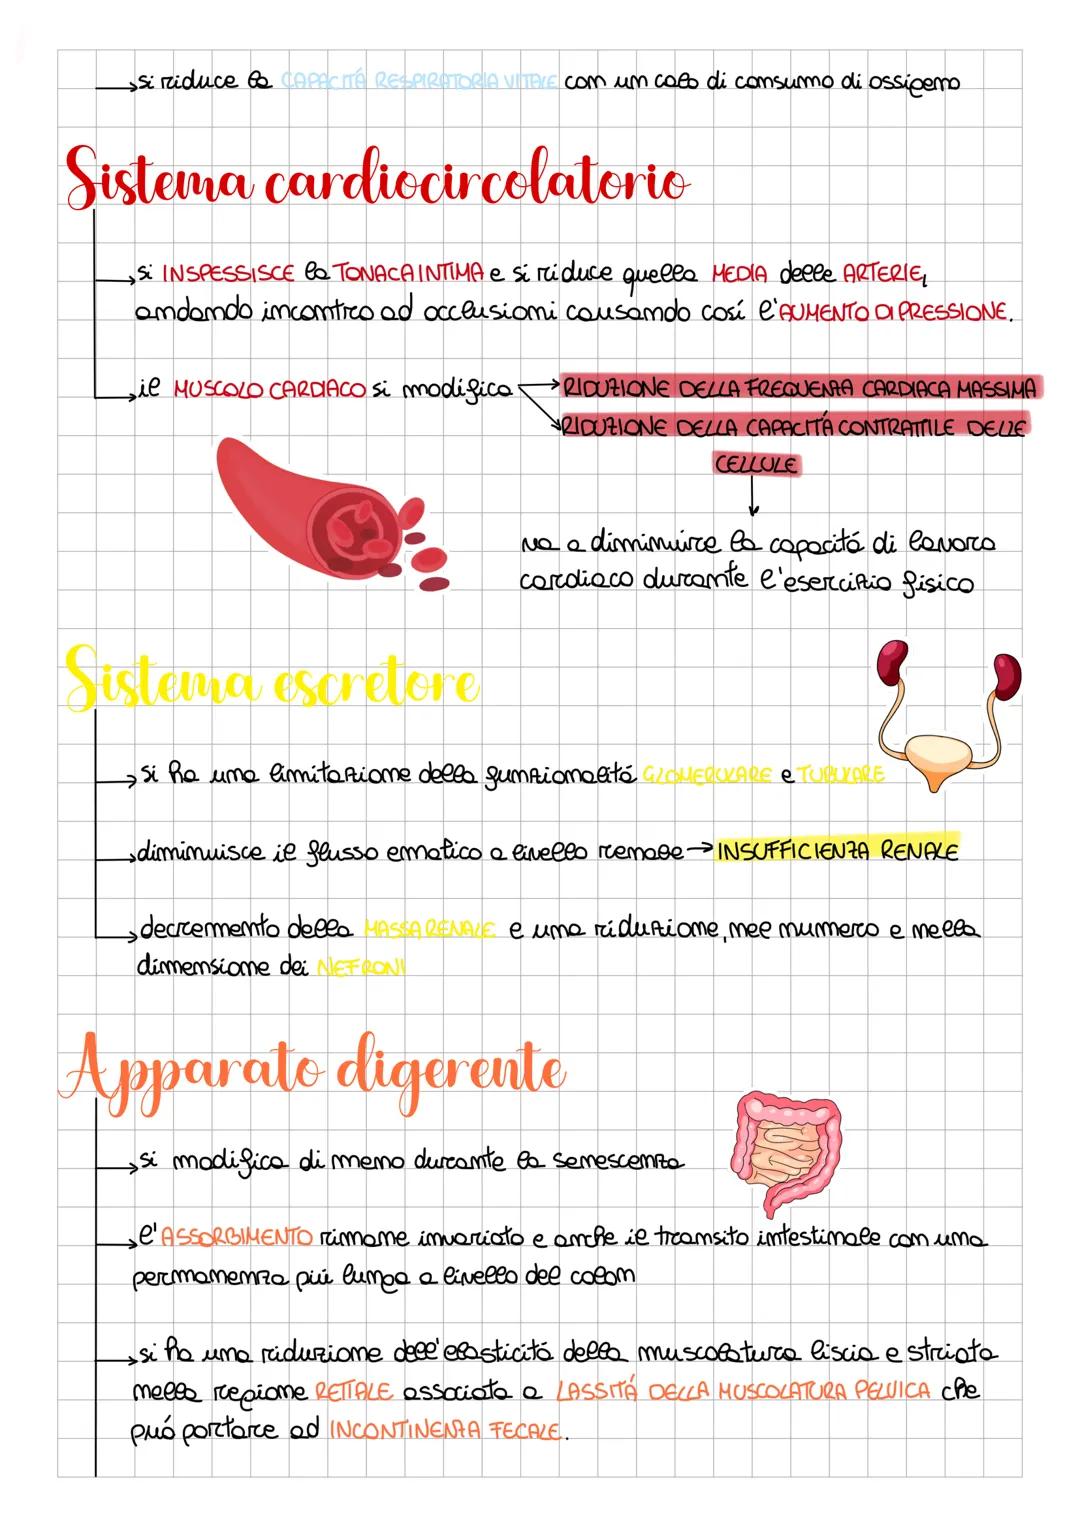 si riduce la CAPACITÁ RESPIRATORIA VITALE con un calo di consumo di ossigeno
Sistema cardiocircolatorio
si INSPESSISCE la TONACA INTIMA e si riduce quella MEDIA delle ARTERIE,
andando incontro ad occlusioni causando cosí l'AUMENTO DI PRESSIONE.
il MUSCOLO CARDIACO si modifica
RIDUZIONE DELLA FREQUENZA CARDIACA MASSIMA
RIDUZIONE DELLA CAPACITÁ CONTRATTILE DELLE
CELLULE
va a diminuire la capacitá di lavoro
cardiaco durante l'esercizio fisico
Sistema escretore
si ha una limitazione della funzionalitá GLOMERULARE e TUBULARE
diminuisce il flusso ematico a livello renale → INSUFFICIENZA RENALE
decremento della MASSA RENALE e una riduzione, nel numero e nella
dimensione dei NEFRONI
Apparato digerente
si modifica di meno durante la senescenza
l'ASSORBIMENTO rimane invariato e anche il transito intestinale con una
permanenza piú lunga a livello del colon
si ha una riduzione dell'elasticitá della muscolatura liscia e striata
nella regione RETTALE associata a LASSITÁ DELLA MUSCOLATURA PELVICA che
puó portare ad INCONTINENZA FECALE.